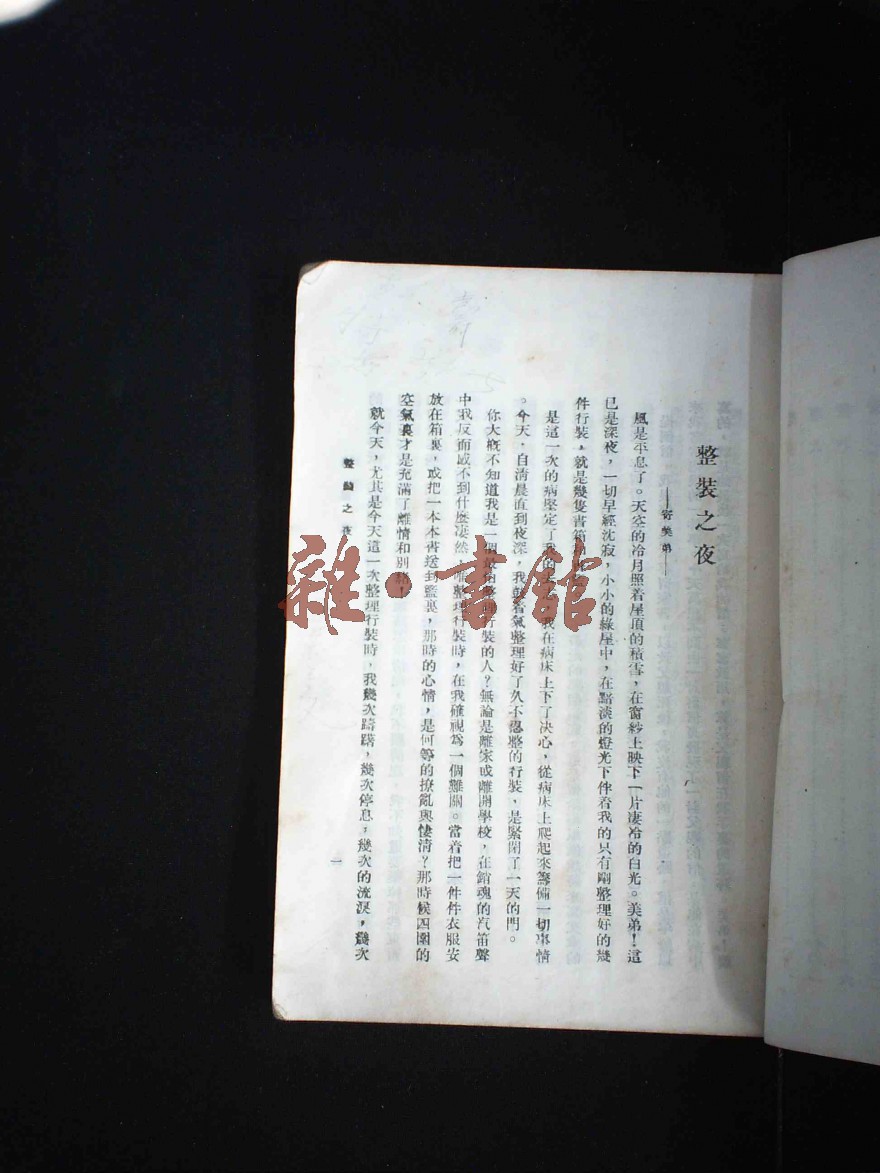 整裝之夜
——寄美弟——
風是平息了。天空的冷月照着屋頂的積雪，在窗紗上映下一片淒冷的白光。美弟！這
已是深夜，一切早經沈寂，小小的綠屋中，在黯淡的燈光下伴着我的只有剛整理好的幾
件行裝，就是幾隻書箱
是這一次的病堅定了我的 我在病床上下了決心，從病床上爬起來籌備一切事情
。今天，自清晨直到夜深，我 着氣整理好了久不忍整的行裝，是緊閉了一天的門。
你大槪不知道我是一個最怕整理行裝的人？無論是離家或離開學校，在銷魂的汽笛聲
中我反而感不到什麽凄然，唯整理行裝時，在我確視爲一個難關。當着把一件件衣服安
放在箱裏，或把一本本書送到籃裏，那時的心情，是何等的撩亂與悽清？那時候四圍的
空氣裏才是充滿了離情和別緒！
就今天，尤其是今天這一次整理行裝時，我幾次躊躇，幾次停息，幾次的流淚，幾次
整裝之夜
一
雜·書舘